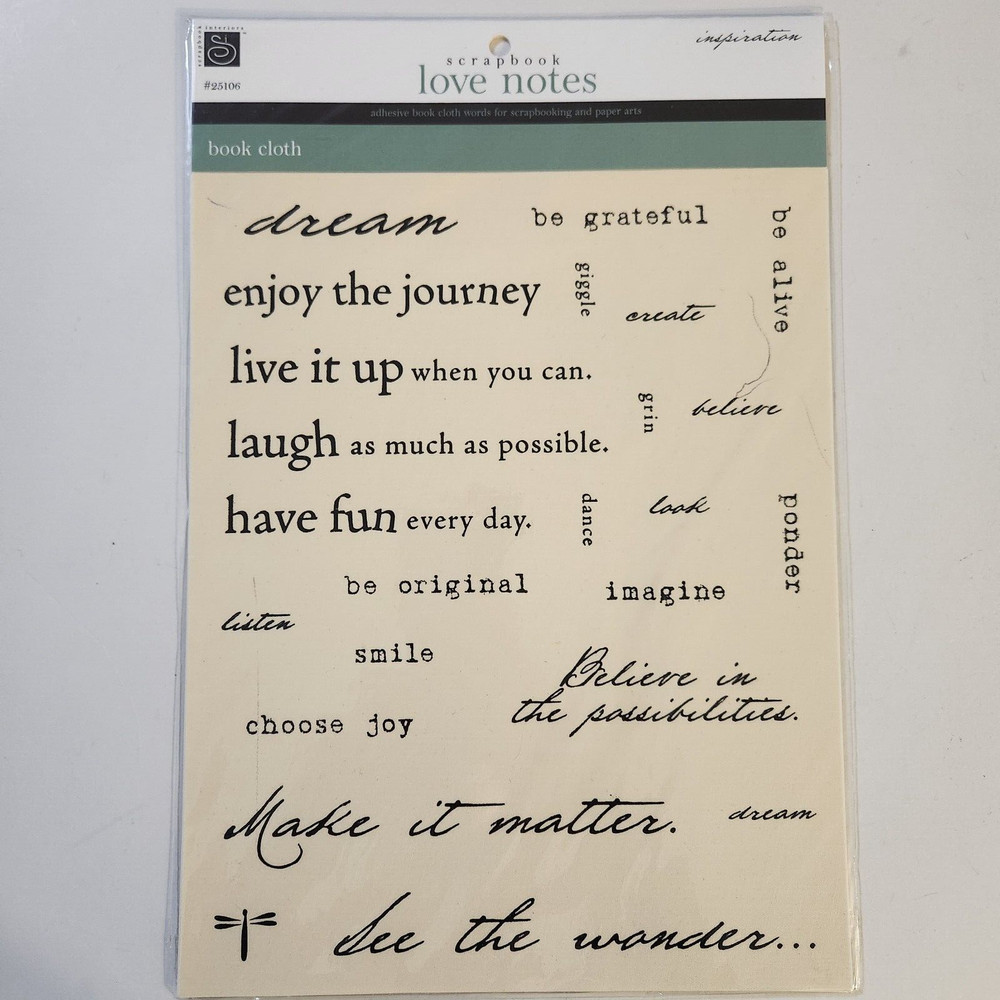 scrapbook interiors
Si
#25106
inspiration
scrapbook
love notes
adhesive book cloth words for scrapbooking and paper arts
book cloth
dream
be grateful
be alive
enjoy the journey
giggle
create
live it up when you can.
grin
believe
laugh as much as possible.
have fun every day.
dance
look
ponder
be original
imagine
listen
smile
Believe in
the possibilities.
choose joy
Make it matter.
dream
See the wonder...